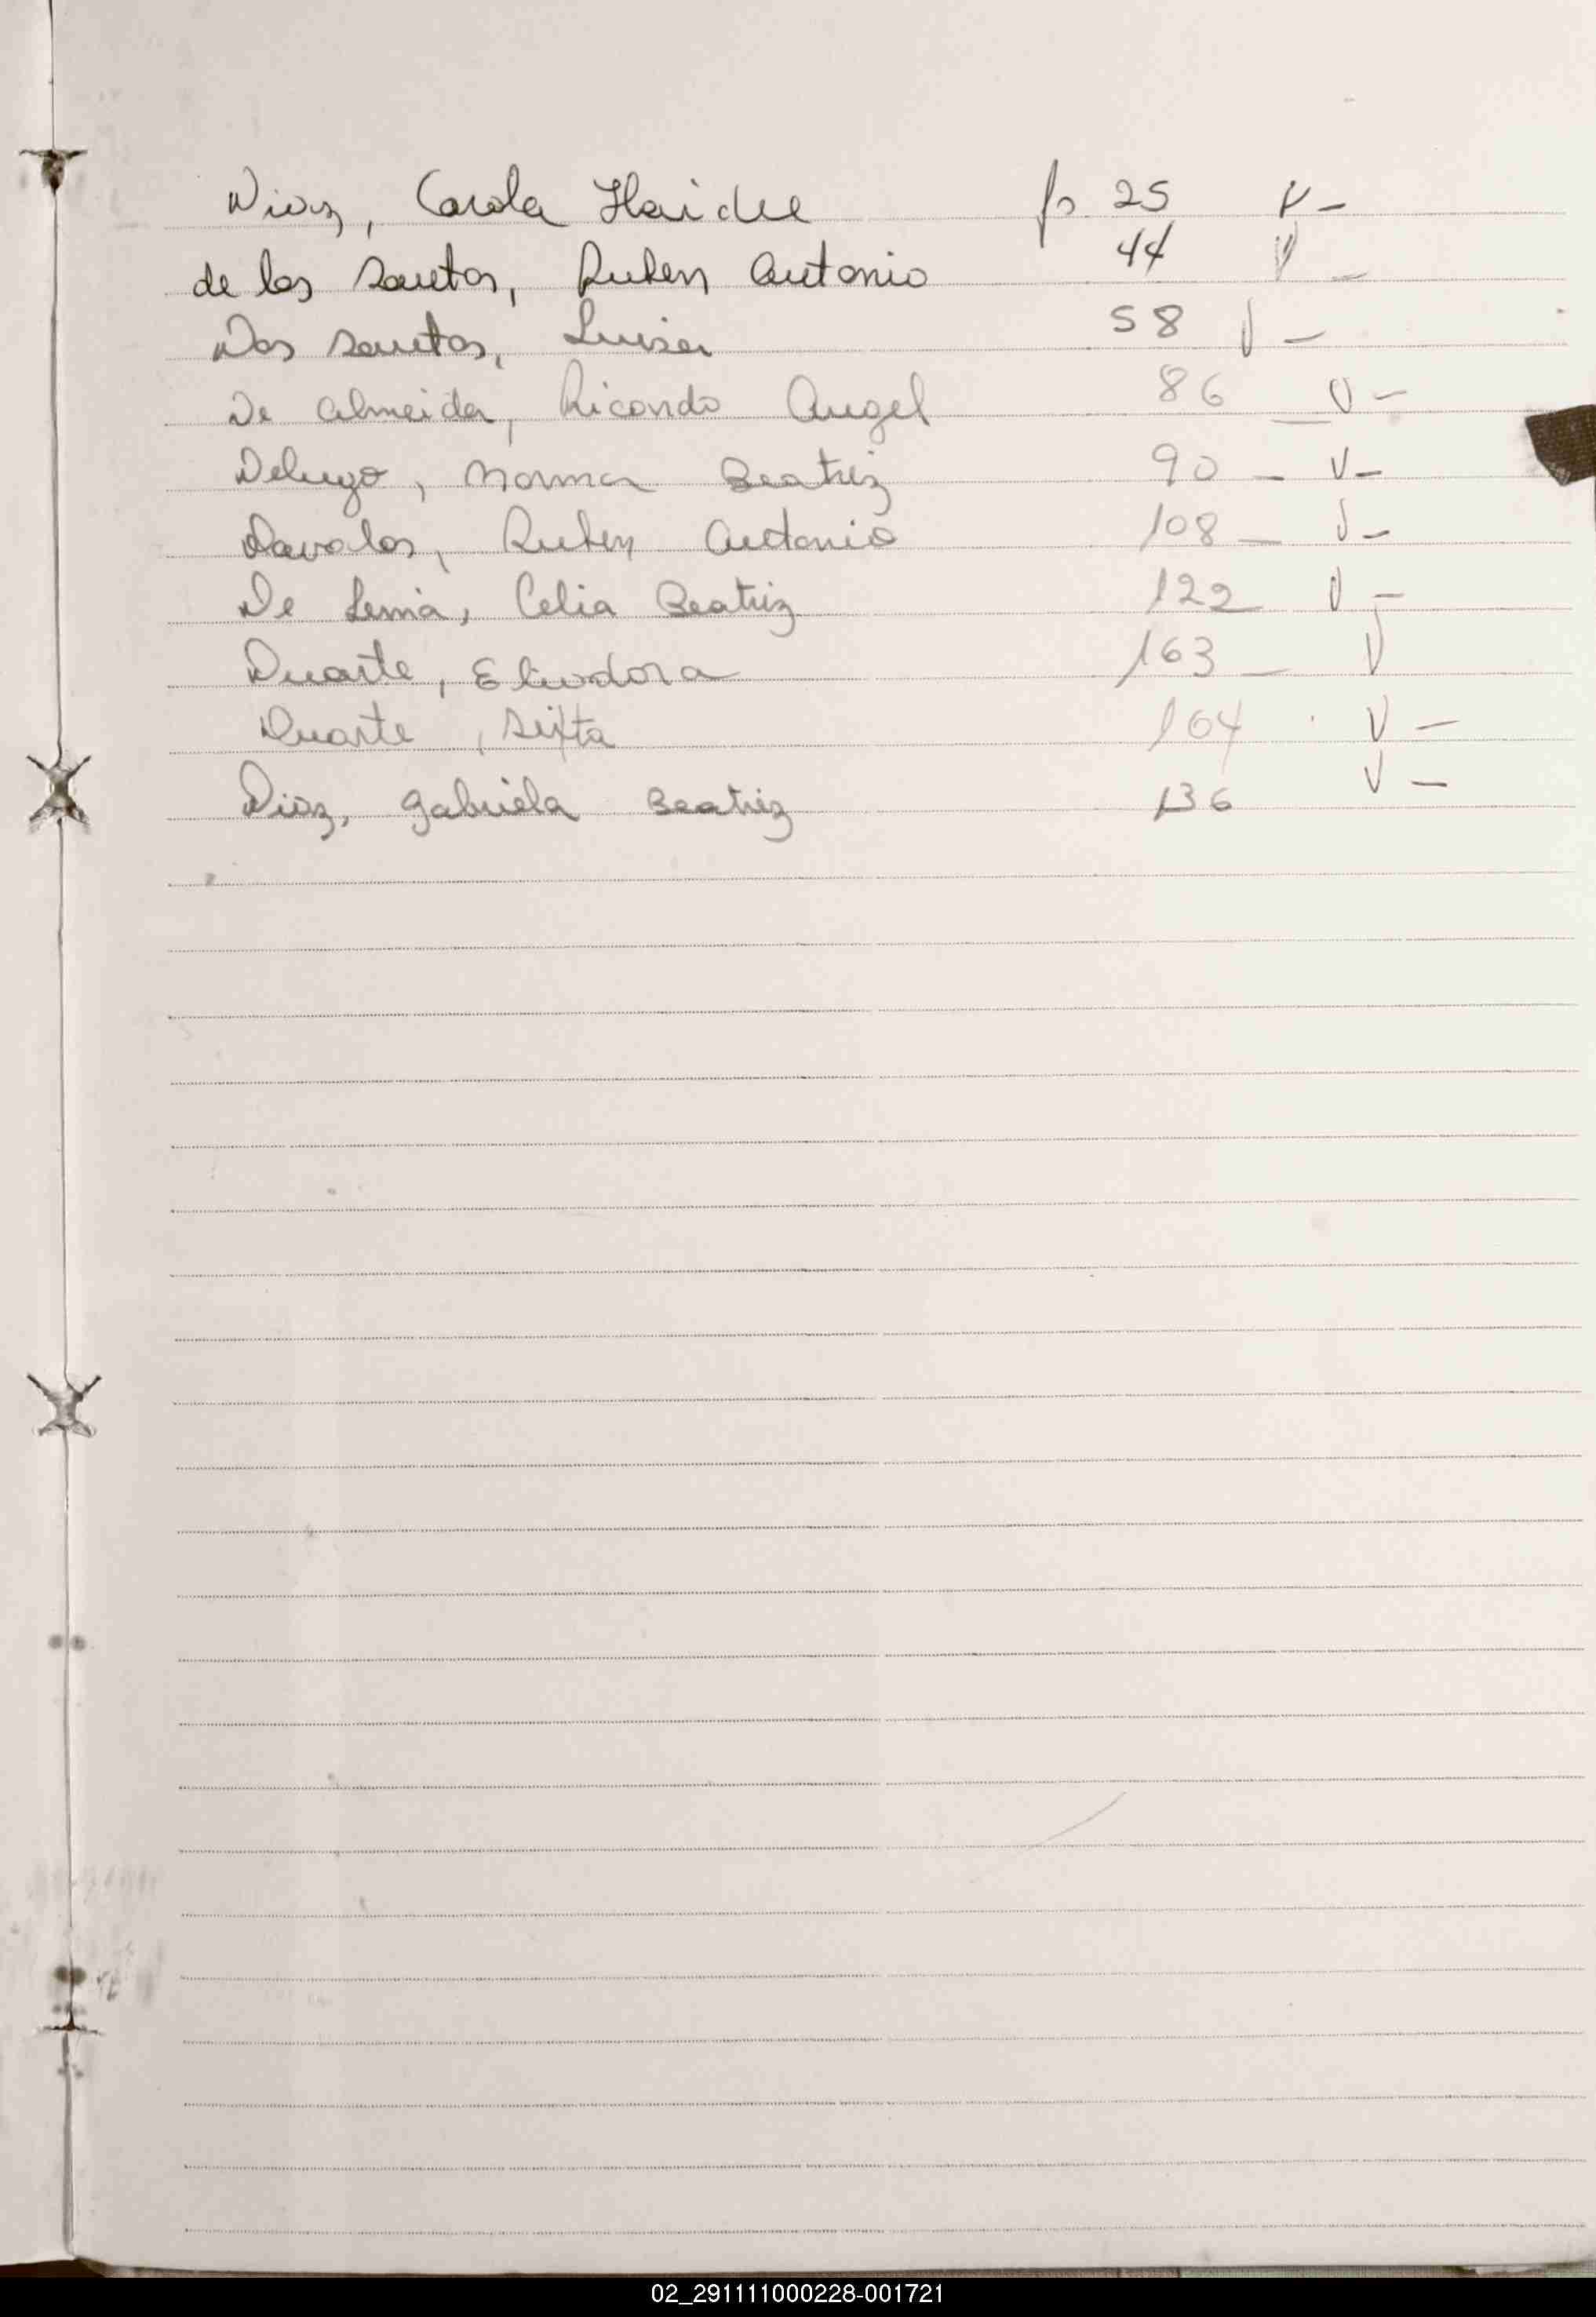 Diaz, Carola Haidee fs 25 V -
de los Santos, Ruben Antonio 44 V -
Dos Santos, Luisa 58 V -
De Almeida, Ricardo Angel 86 - V -
Delugo, Norma Beatriz 90 - V -
Davalos, Ruben Antonio 108 - V -
De Lima, Celia Beatriz 122 - V -
Duarte, Eliodora 163 - V
Duarte, Sixta 164 V -
Diaz, Gabriela Beatriz 136 V -
02_291111000228-001721